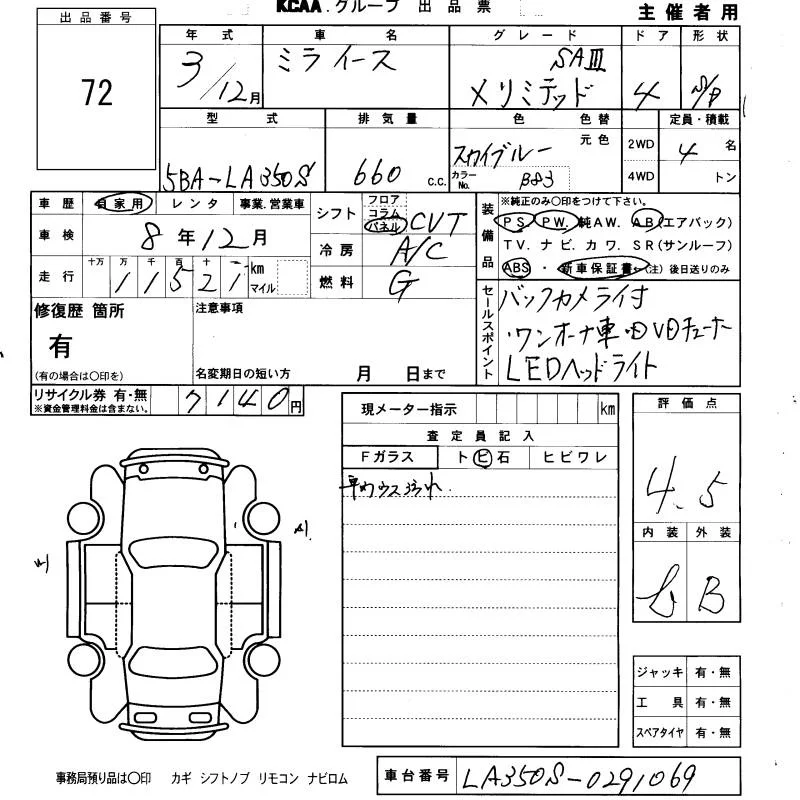 KCAA.グループ 出品票 主催者用
出品番号
72
年式 車名 グレード ドア 形状
3/12月 ミライース SAⅢ メリミテッド 4 5/D
型式 排気量 色 色替 定員・積載
元色
5BA-LA350S 660 c.c. スカイブルー カラーNo. B83 2WD 4WD 4名 トン
車歴 自家用 レンタ 事業.営業車
車検 8年12月
走行 十万 万 千 百 十 一 11521 km マイル
シフト フロア コラム パネル CVT
冷房 A/C
燃料 G
装備品 ※純正のみ〇印をつけて下さい。
PS. PW. 純AW. AB(エアバック)
TV. ナビ. カワ. SR(サンルーフ)
ABS ・ 新車保証書 (注)後日送りのみ
セールスポイント
バックカメラ付
・ワンオーナ車・DVDチューナー
LEDヘッドライト
修復歴 箇所
有
(有の場合は〇印を)
注意事項
名変期日の短い方 月 日まで
リサイクル券 有・無 7140円
※資金管理料金は含まない。
現メーター指示 km
査定員記入
Fガラス トビ石 ヒビワレ
評価点
4.5
内装 外装
B
ジャッキ 有・無
工具 有・無
スペアタイヤ 有・無
事務局預り品は〇印 カギ シフトノブ リモコン ナビロム
車台番号 LA350S-0291069